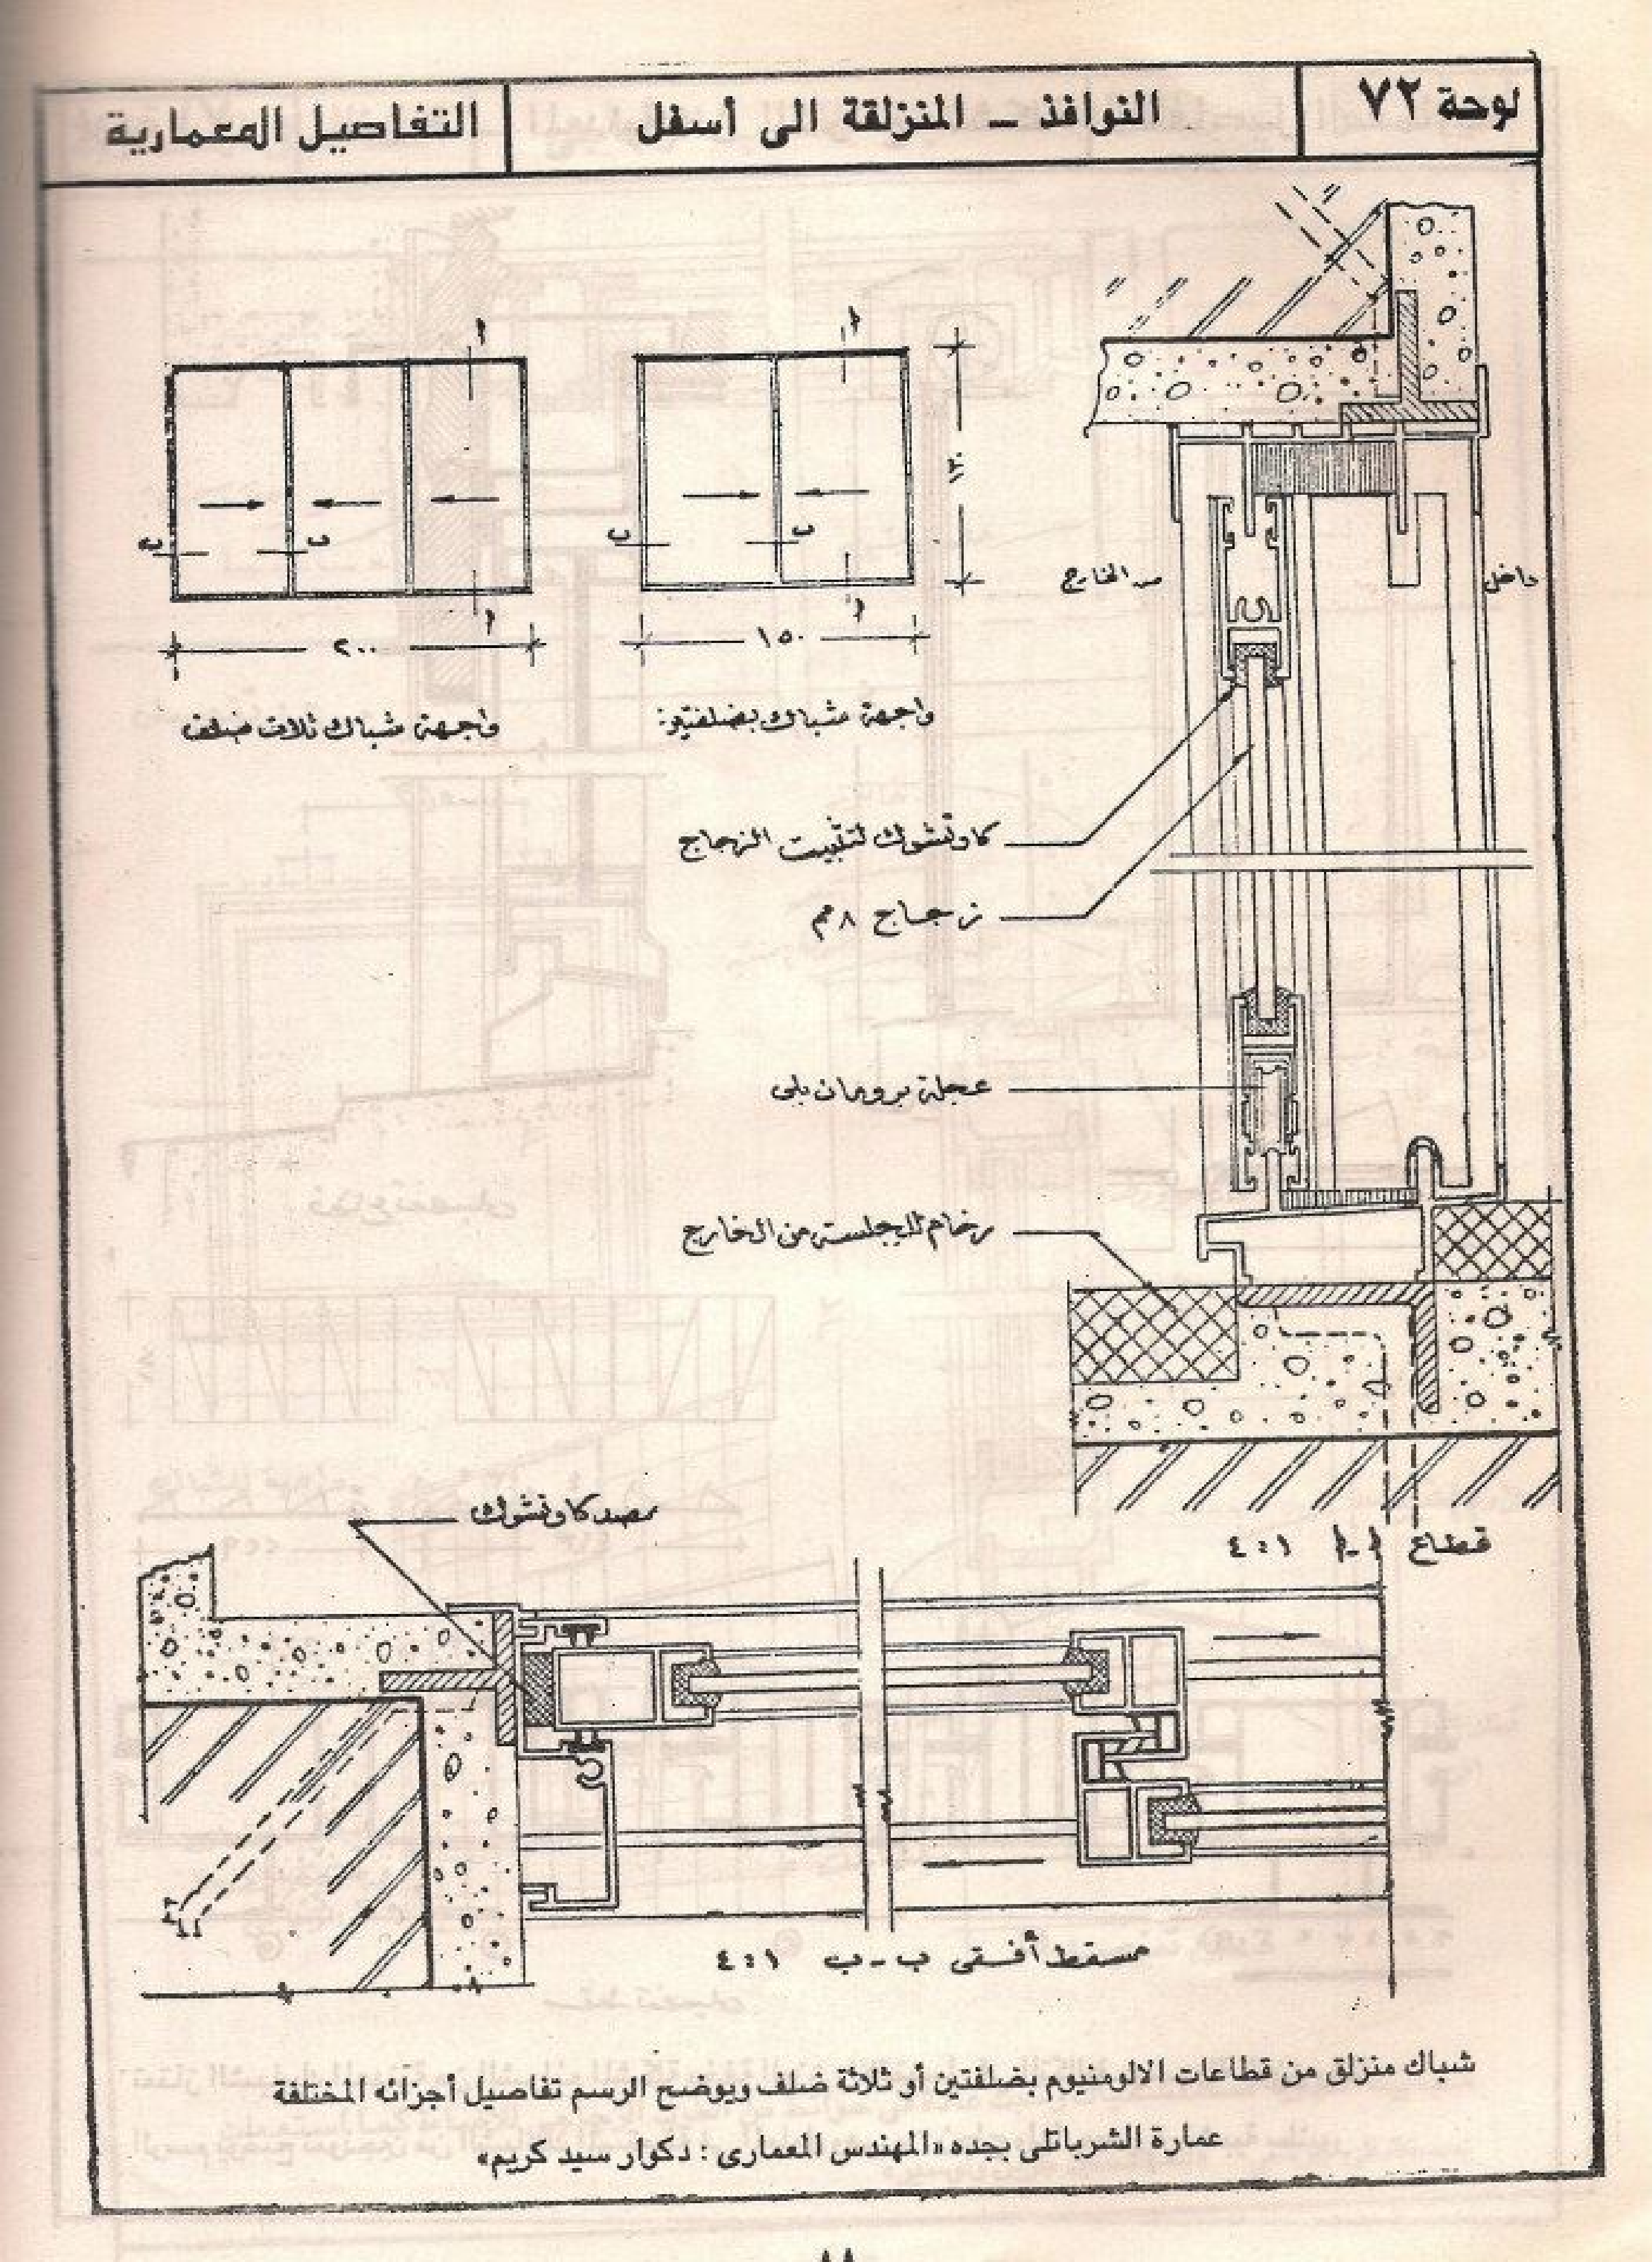 لوحة ٧٢
النوافذ – المنزلقة الى أسفل
التفاصيل المعمارية
أ
أ
ب
ب
أ
أ
ب
ب
٢٠٠
١٥٠
واجهة شباك ثلاث ضلف
واجهة شباك بضلفتين
من الخارج
داخل
كاوتشوك لتثبيت الزجاج
زجاج ٨ مم
عجلة برومان بلى
رخام للجلسة من الخارج
قطاع أ-أ ١:٤
مصد كاوتشوك
مسقط أفقى ب-ب ١:٤
شباك منزلق من قطاعات الالومنيوم بضلفتين أو ثلاثة ضلف ويوضح الرسم تفاصيل أجزائه المختلفة
عمارة الشرباتلى بجده «المهندس المعمارى : دكوار سيد كريم»